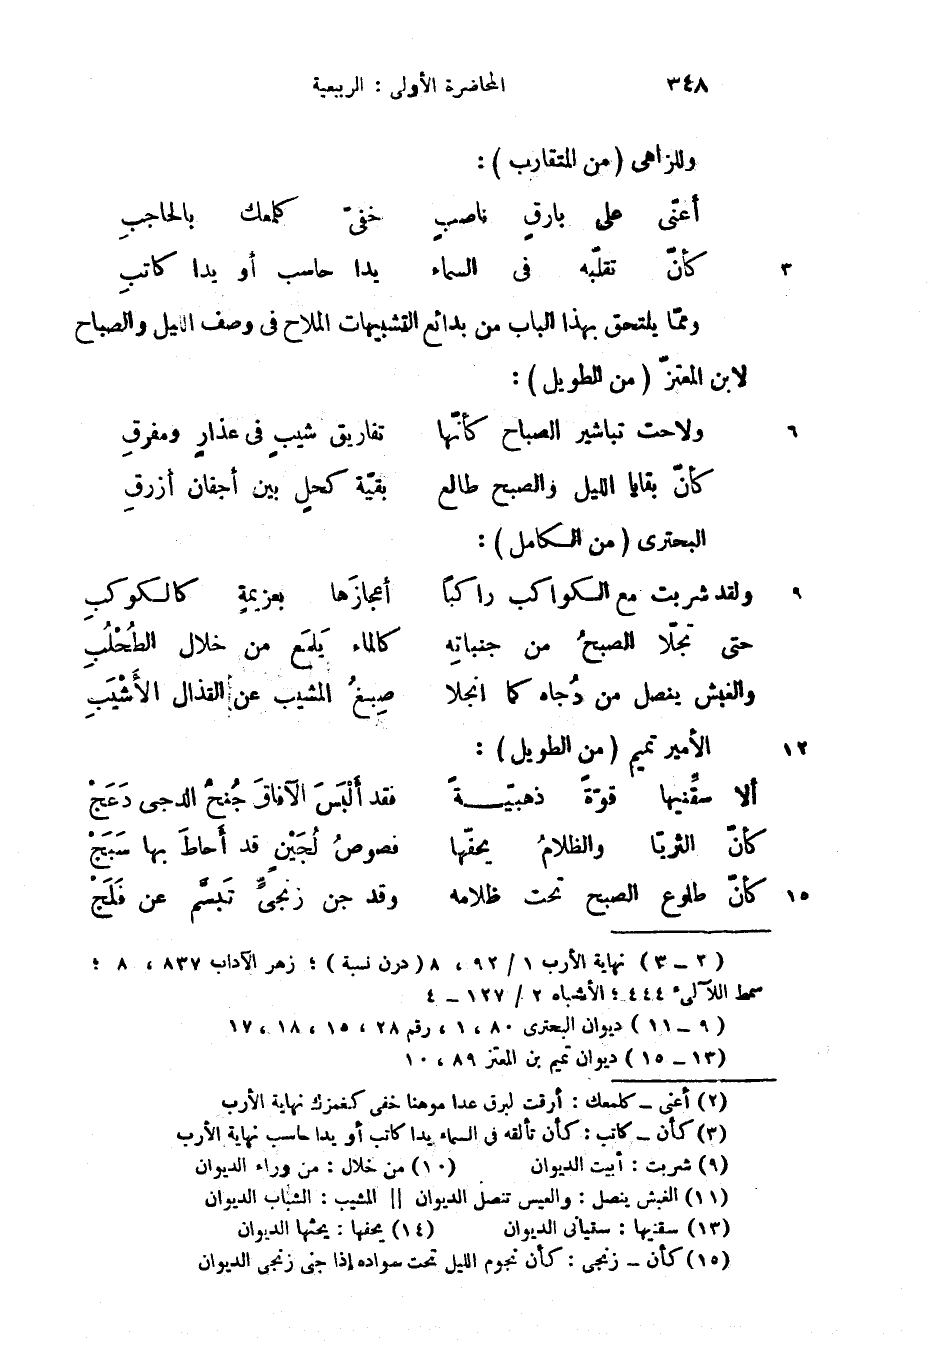 ٣٤٨ المحاضرة الأولى : الربيعية
وللزاهى (من المتقارب) :
أعنّى على بارقٍ ناصبٍ خفىّ كلمعك بالحاجبِ
٣ كأنّ تقلّبه فى السماء يدا حاسب أو يدا كاتبِ
وممّا يلتحق بهذا الباب من بدائع التشبيهات الملاح فى وصف الليل والصباح
لابن المعتزّ (من الطويل) :
٦ ولاحت تباشير الصباح كأنّها تفاريق شيبٍ فى عذارٍ ومفرقِ
كأنّ بقايا الليل والصبح طالع بقيّة كحلٍ بين أجفان أزرقِ
البحترى (من الكامل) :
٩ ولقد شربت مع الكواكب راكبًا أعجازَها بعزيمةٍ كالكوكبِ
حتى تجلّا الصبحُ من جنباتِه كالماء يَلمَع من خلال الطُحْلُبِ
والغبش ينصل من دُجاه كما انجلا صِبغُ المشيب عن القذال الأَشْيَبِ
١٢ الأمير تميم (من الطويل) :
ألا سقّنيها قهوّةً ذهبيّةً فقد أَلْبَسَ الآفاقَ جُنحُ الدجى دَعَجْ
كأنّ الثريّا والظلامُ يحفّها فصوصُ لُجَيْنٍ قد أَحاطَ بها سَبَجْ
١٥ كأنّ طلوع الصبح تحت ظلامه وقد جن زنجىٌّ تَبسَّم عن فَلَجْ
(٢ – ٣) نهاية الأرب ١ / ٩٢ ، ٨ (درن نسبة) ؛ زهر الآداب ٨٣٧ ، ٨ ؛
سمط اللآلىء ٤٤٤ ؛ الأشباه ٢ / ١٢٧ – ٤
(٩ – ١١) ديوان البحترى ٨٠ ، ١ ، رقم ٢٨ ، ١٥ ، ١٨ ، ١٧
(١٣ – ١٥) ديوان تميم بن المعتز ٨٩ ، ١٠
(٢) أعنى – كلمعك : أرقت لبرق عدا موهنا خفى كغمزك نهاية الأرب
(٣) كأن – كاتب : كأن تألقه فى السماء يدا كاتب أو يدا حاسب نهاية الأرب
(٩) شربت : أبيت الديوان (١٠) من خلال : من وراء الديوان
(١١) الغبش ينصل : والعيس تنصل الديوان || المشيب : الشباب الديوان
(١٣) سقنيها : سقيانى الديوان (١٤) يحفها : يحثها الديوان
(١٥) كأن – زنجى : كأن نجوم الليل تحت سواده إذا جنى زنجى الديوان